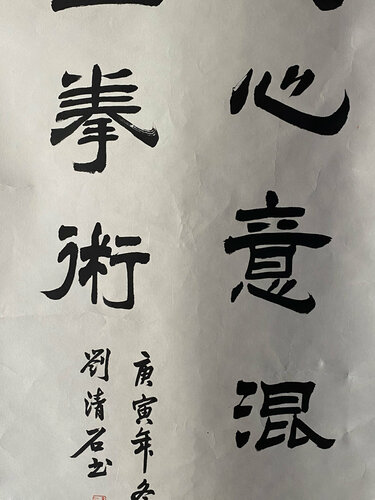 心意混
拳術
庚寅年冬
劉清石书